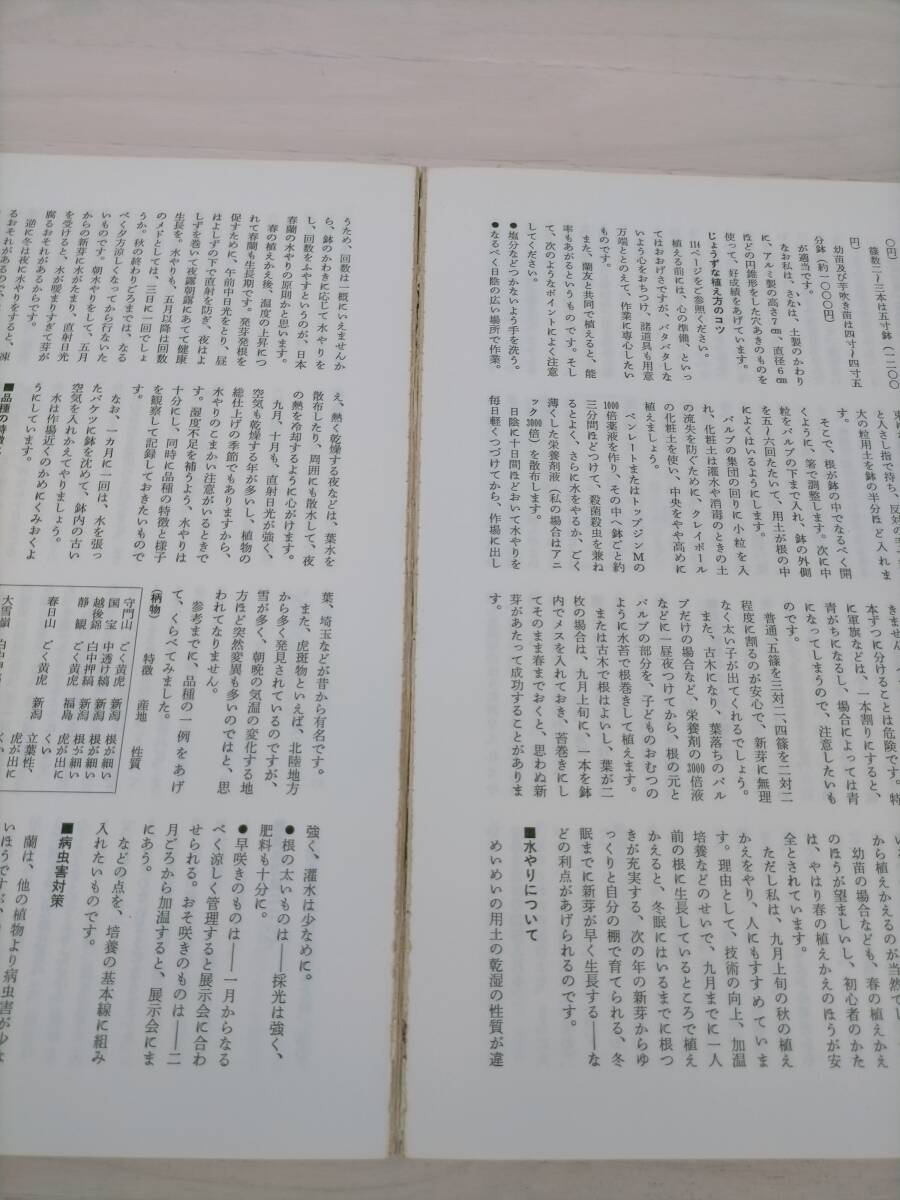 〇円)
篠数二〜三本は五寸鉢(一二〇〇
円)
幼苗及び芋吹き苗は四寸〜四寸五
分鉢(約一〇〇〇円)
が適当です。
なお私は、さなは、土製のかわり
に、アルミ製の高さ7cm、直径6cm
ほどの円錐形をした穴あきのものを
使って、好成績をあげています。
じょうずな植え方のコツ
114ページをご参照ください。
植える前には、心の準備、といっ
てはおおげさですが、バタバタしな
いよう心をおちつけ、諸道具も用意
万端ととのえて、作業に専心したい
ものです。
また、蘭友と共同で植えると、能
率もあがるというものです。そし
て、次のようなポイントによく注意
してください。
●塩分などつかないよう手を洗う。
●なるべく日陰の広い場所で作業。
と人さし指で持ち、反対の手で
大の粒用土を鉢の半分ほど入れま
す。
そこで、根が鉢の中でなるべく開
くように、箸で調整します。次に中
粒をバルブの下まで入れ、鉢の外側
を五〜六回たたいて、用土が根の中
によくはいるようにします。
バルブの集団の回りに小粒を入
れ、化粧土は灌水や消毒のときの土
の流失を防ぐために、クレイボール
の化粧土を使い、中央をやや高めに
植えましょう。
ベンレートまたはトップジンMの
1000倍薬液を作り、その中へ鉢ごと約
三分間ほどつけて、殺菌殺虫を兼ね
るとよく、さらに水をやるか、ごく
薄くした栄養剤液(私の場合はアニ
ック3000倍)を散布します。
日陰に十日間ほどおいて水やりを
毎日軽くつづけてから、作場に出し
本ずつに分けることは危険です。特
に軍旗などは、一本割りにすると、
青がちになるし、場合によっては青
になってしまうので、注意したいも
のです。
普通、五篠を三対二、四篠を二対二
程度に割るのが安心で、新芽に無理
なく太い子が出てくれるでしょう。
また、古木になり、葉落ちのバル
ブだけの場合など、栄養剤の3000倍液
などに一昼夜つけてから、根の元と
バルブの部分を、子どものおむつの
ように水苔で根巻きして植えます。
または古木で根はよいし、葉が二
枚の場合は、九月上旬に、一本を鉢
内でメスを入れておき、苔巻きにし
てそのまま春までおくと、思わぬ新
芽があたって成功することがありま
す。
から植えかえるのが当然でし
幼苗の場合なども、春の植えかえ
のほうが望ましいし、初心者のかた
は、やはり春の植えかえのほうが安
全とされています。
ただし私は、九月上旬の秋の植え
かえをやり、人にもすすめていま
す。理由として、技術の向上、加温
培養などのせいで、九月までに一人
前の根に生長しているところで植え
かえると、冬眠にはいるまでに根つ
きが充実する、次の年の新芽からゆ
っくりと自分の棚で育てられる、冬
眠までに新芽が早く生長する――な
どの利点があげられるのです。
■水やりについて
めいめいの用土の乾湿の性質が違
うため、回数は一概にいえませんか
ら、鉢のかわきに応じて水やりを
し、回数をふやすというのが、日本
春蘭の水やりの原則かと思います。
春の植えかえ後、温度の上昇につ
れて春蘭も生長期です。発芽発根を
促すために、午前中日光をとり、昼
はよしずの下で直射を防ぎ、夜はよ
しずを巻いて夜露朝露にあてて健康
生長を。水やりも、五月以降は回数
のメドとしては、三日に一回でしょ
うか。秋の終わりごろまでは、なる
べく夕方涼しくなってから行ないた
いものです。朝水やりをして、五月
からの新芽に水がたまり、直射日光
を受けると、水が熱まりすぎて芽が
腐るおそれがあるからです。
逆に冬は夜に水やりをすると、凍
るおそれがあるので、
え、熱く乾燥する夜などは、葉水を
散布したり、周囲にも散水して、夜
の熱を冷却するように心がけます。
九月、十月も、直射日光が強く、
空気も乾燥する年が多いし、植物の
総仕上げの季節でもありますから、
水やりのこまかい注意がいるときで
す。湿度不足を補うよう、水やりは
十分にし、同時に品種の特徴と様子
を観察して記録しておきたいもので
す。
なお、一カ月に一回は、水を張っ
たバケツに鉢を沈めて、鉢内の古い
空気を入れかえてやりましょう。
水は作場近くのかめにくみおくよ
うにしています。
■品種の特徴
葉、埼玉などが昔から有名です。
また、虎斑物といえば、北陸地方
から多く発見されているのですが、
雪が多く、朝晩の気温の変化する地
方ほど突然変異も多いのではと、思
われてなりません。
参考までに、品種の一例をあげ
て、くらべてみました。
(柄物) 特徴 産地 性質
守門山 ごく黄虎 新潟 根が細い
国宝 中透け縞 新潟 根が細い
越後錦 白中押縞 新潟 根が細い
静観 ごく黄虎 福島 虎が出に
くい
春日山 ごく黄虎 新潟 立葉性、
虎が出に
くい
大雪嶺
強く、灌水は少なめに。
●根の太いものは――採光は強く、
肥料も十分に。
●早咲きのものは――一月からなる
べく涼しく管理すると展示会に合わ
せられる。おそ咲きのものは――二
月ごろから加温すると、展示会にま
にあう。
などの点を、培養の基本線に組み
入れたいものです。
■病虫害対策
蘭は、他の植物より病虫害が少な
いほうですが、